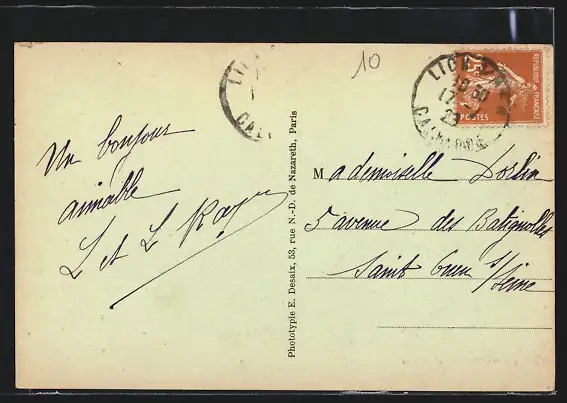 10
Un bonjour
aimable
L et L
Phototypie E. Desaix, 53, rue N.-D. de Nazareth, Paris
REPUBLIQUE FRANÇAISE
25c
POSTES
CALVADOS
Mademoiselle Dorlin
5 avenue des Batignolles
Saint Ouen s/Seine